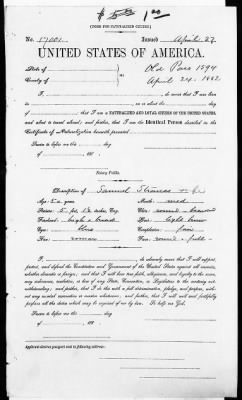 $ 1.00
(FORM FOR NATURALIZED CITIZEN.)
No. Issued April 27
UNITED STATES OF AMERICA.
State of Old Pass 1594
County of ss: April 24. 1882
I, do swear that I was born
in on or about the day
of that I am a NATURALIZED AND LOYAL CITIZEN OF THE UNITED STATES,
and about to travel abroad; and further, that I am the Identical Person described in the
Certificate of Naturalization herewith presented.
Sworn to before me, this day
of 188
Notary Public.
Description of Samuel Strauss
Age: Mouth: med
Stature: 5 ft. Eng. Chin: round
Forehead: high & broad Hair: light brown
Eyes: blue Complexion: fair
Nose: roman Face: round & full
I, do solemnly swear that I will support,
protect, and defend the Constitution and Government of the United States against all enemies,
whether domestic or foreign; and that I will bear true faith, allegiance, and loyalty to the same,
any ordinance, resolution, or law of any State, Convention, or Legislature to the contrary not-
withstanding; and further, that I do this with a full determination, pledge, and purpose, with-
out any mental reservation or evasion whatsoever; and further, that I will well and faithfully
perform all the duties which may be required of me by law. So help me God.
Sworn to before me, this day
of 188
Applicant desires passport sent to following address: